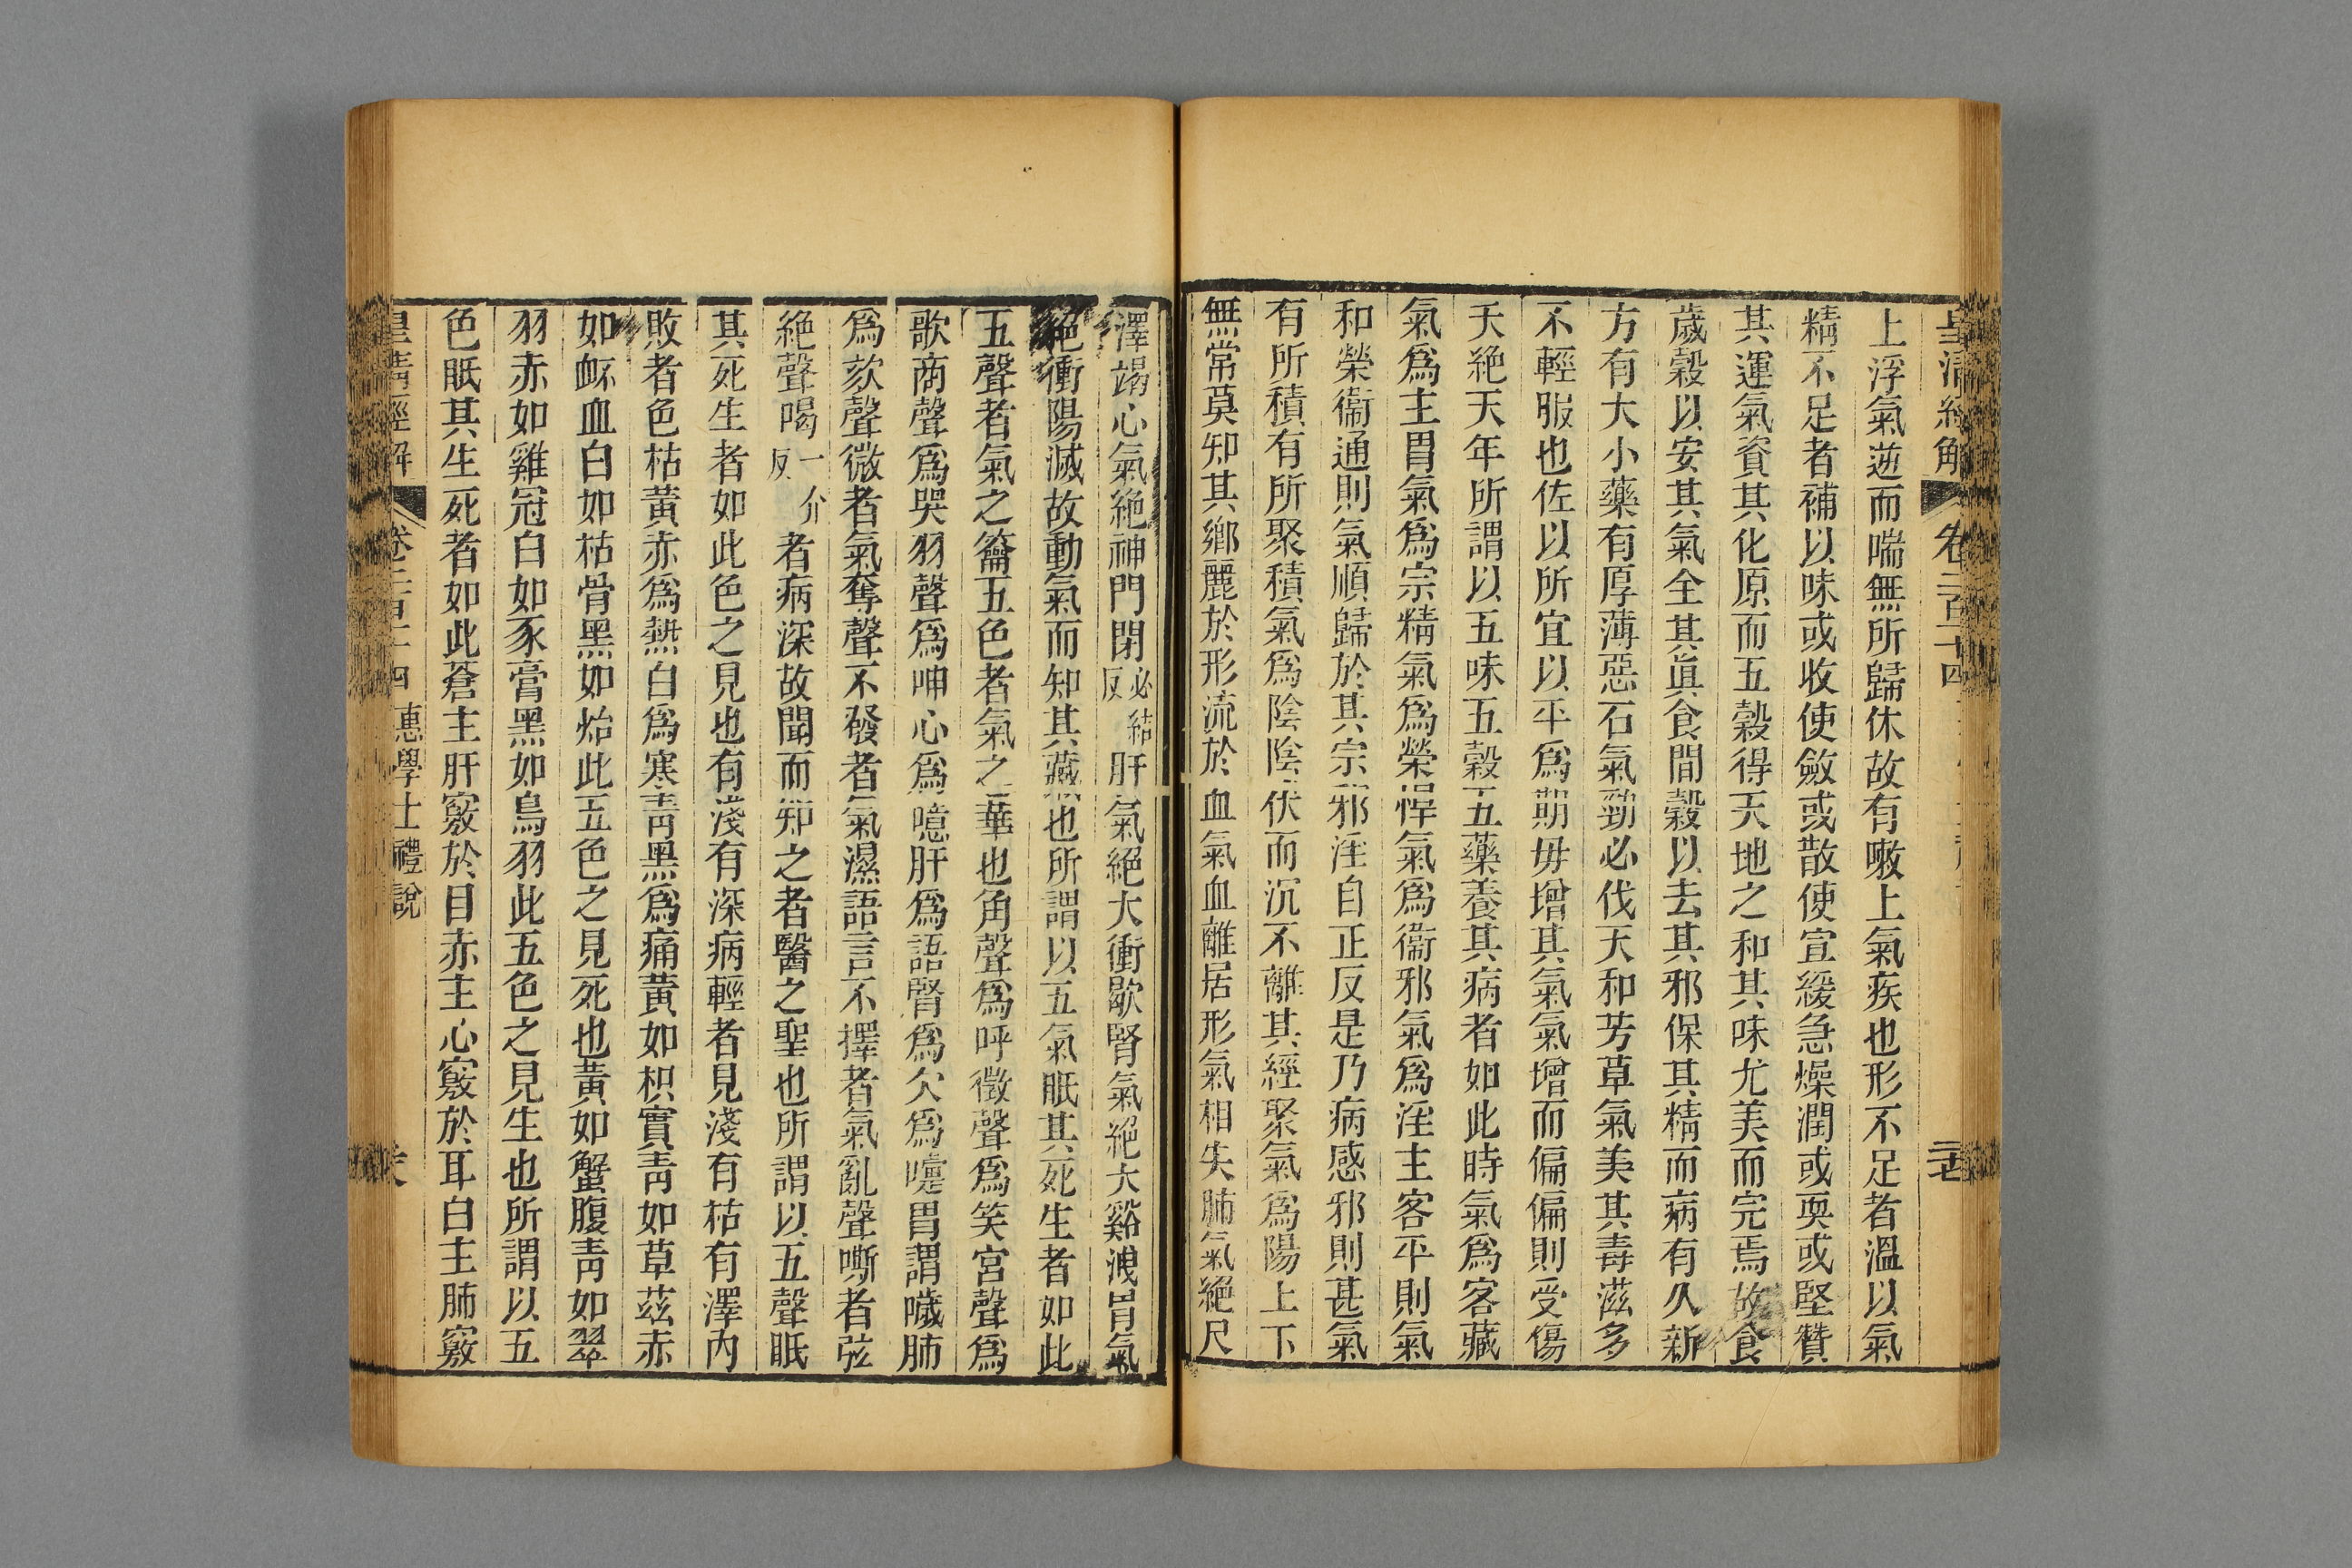 皇清經解 卷二百十四
上浮氣逆而喘無所歸休故有嗽上氣疾也形不足者溫以氣
精不足者補以味或收使斂或散使宣緩急燥潤或耎或堅贊
其運氣資其化原而五穀得天地之和其味尤美而完焉故食
歲穀以安其氣全其眞食間穀以去其邪保其精而病有久新
方有大小藥有厚薄惡石氣勁必伐天和芳草氣美其毒滋多
不輕服也佐以所宜以平爲期毋增其氣氣增而偏偏則受傷
夭絶天年所謂以五味五穀五藥養其病者如此時氣爲客藏
氣爲主胃氣爲宗精氣爲榮悍氣爲衞邪氣爲淫主客平則氣
和榮衞通則氣順歸於其宗邪淫自正反是乃病感邪則甚氣
有所積有所聚積氣爲陰陰伏而沉不離其經聚氣爲陽上下
無常莫知其鄉麗於形流於血氣血離居形氣相失肺氣絕尺
澤竭心氣絕神門閉必結反肝氣絕大衝歇腎氣絕大谿洩胃氣
絕衝陽滅故動氣而知其藏也所謂以五氣眂其死生者如此
五聲者氣之籥五色者氣之華也角聲爲呼徵聲爲笑宮聲爲
歌商聲爲哭羽聲爲呻心爲噫肝爲語腎爲欠爲嚏胃謂噦肺
爲欬聲微者氣奪聲不發者氣濕語言不擇者氣亂聲嘶者弦
絕聲喝一介反者病深故聞而知之者醫之聖也所謂以五聲眂
其死生者如此色之見也有淺有深病輕者見淺有枯有澤內
敗者色枯黃赤爲熱白爲寒靑黑爲痛黃如枳實靑如草茲赤
如衃血白如枯骨黑如炲此五色之見死也黃如蟹腹靑如翠
羽赤如雞冠白如豕膏黑如烏羽此五色之見生也所謂以五
色眂其生死者如此蒼主肝竅於目赤主心竅於耳白主肺竅
皇清經解 卷二百十四 惠學士禮說